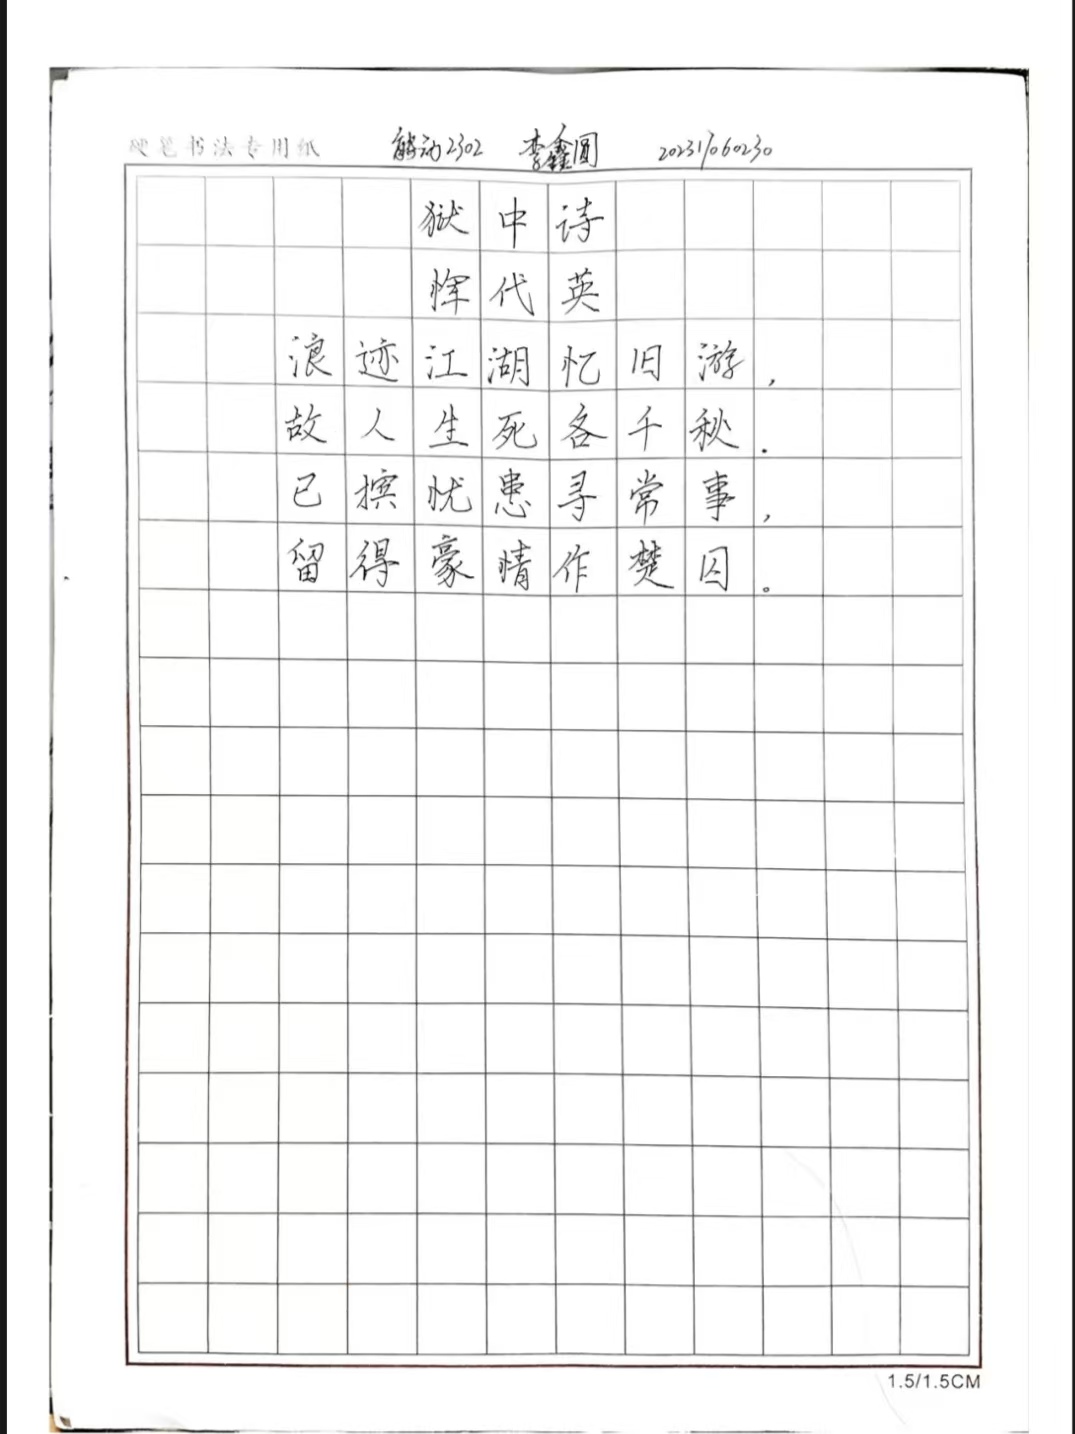 硬笔书法专用纸 能动2302 李鑫圆 20231060230
狱中诗
恽代英
浪迹江湖忆旧游，
故人生死各千秋.
已摈忧患寻常事，
留得豪情作楚囚。
1.5/1.5CM